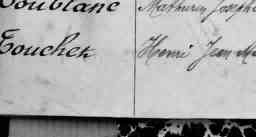 Doublanc Mathurin Joseph
Touchet Henri Jean M